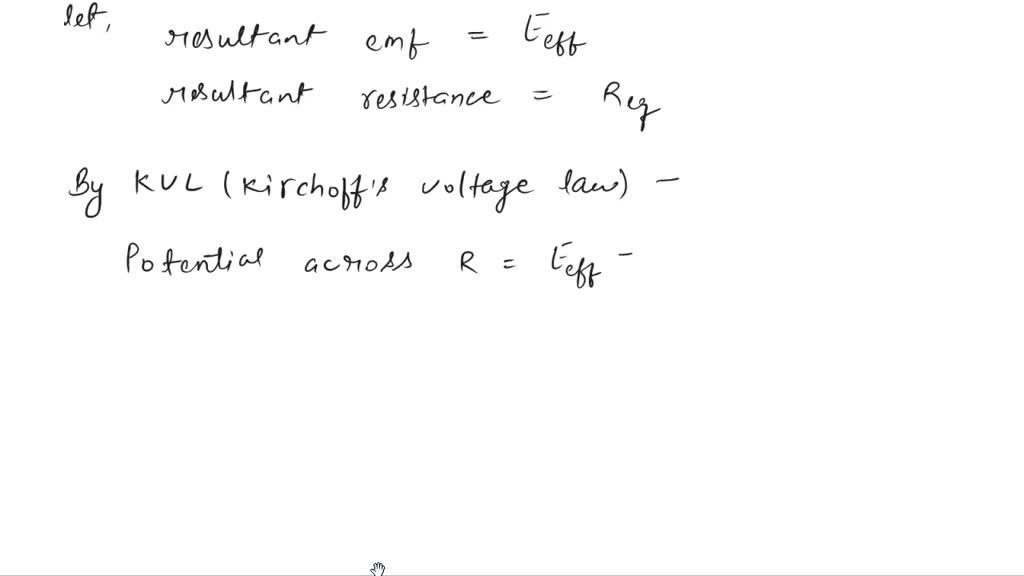 let,
resultant emf = Eeff
resultant resistance = Req
By KVL (Kirchoff's voltage law) -
Potential across R = Eeff -